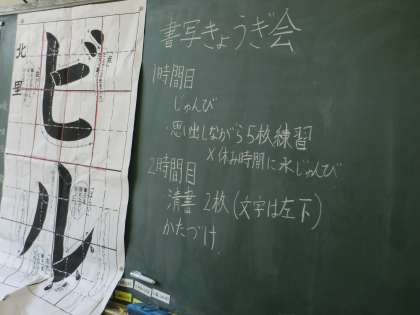 書写きょうぎ会
1時間目
じゅんび
・思い出しながら5枚練習
×休み時間に水じゅんび
2時間目
清書 2枚(文字は左下)
かたづけ
ビル
北里